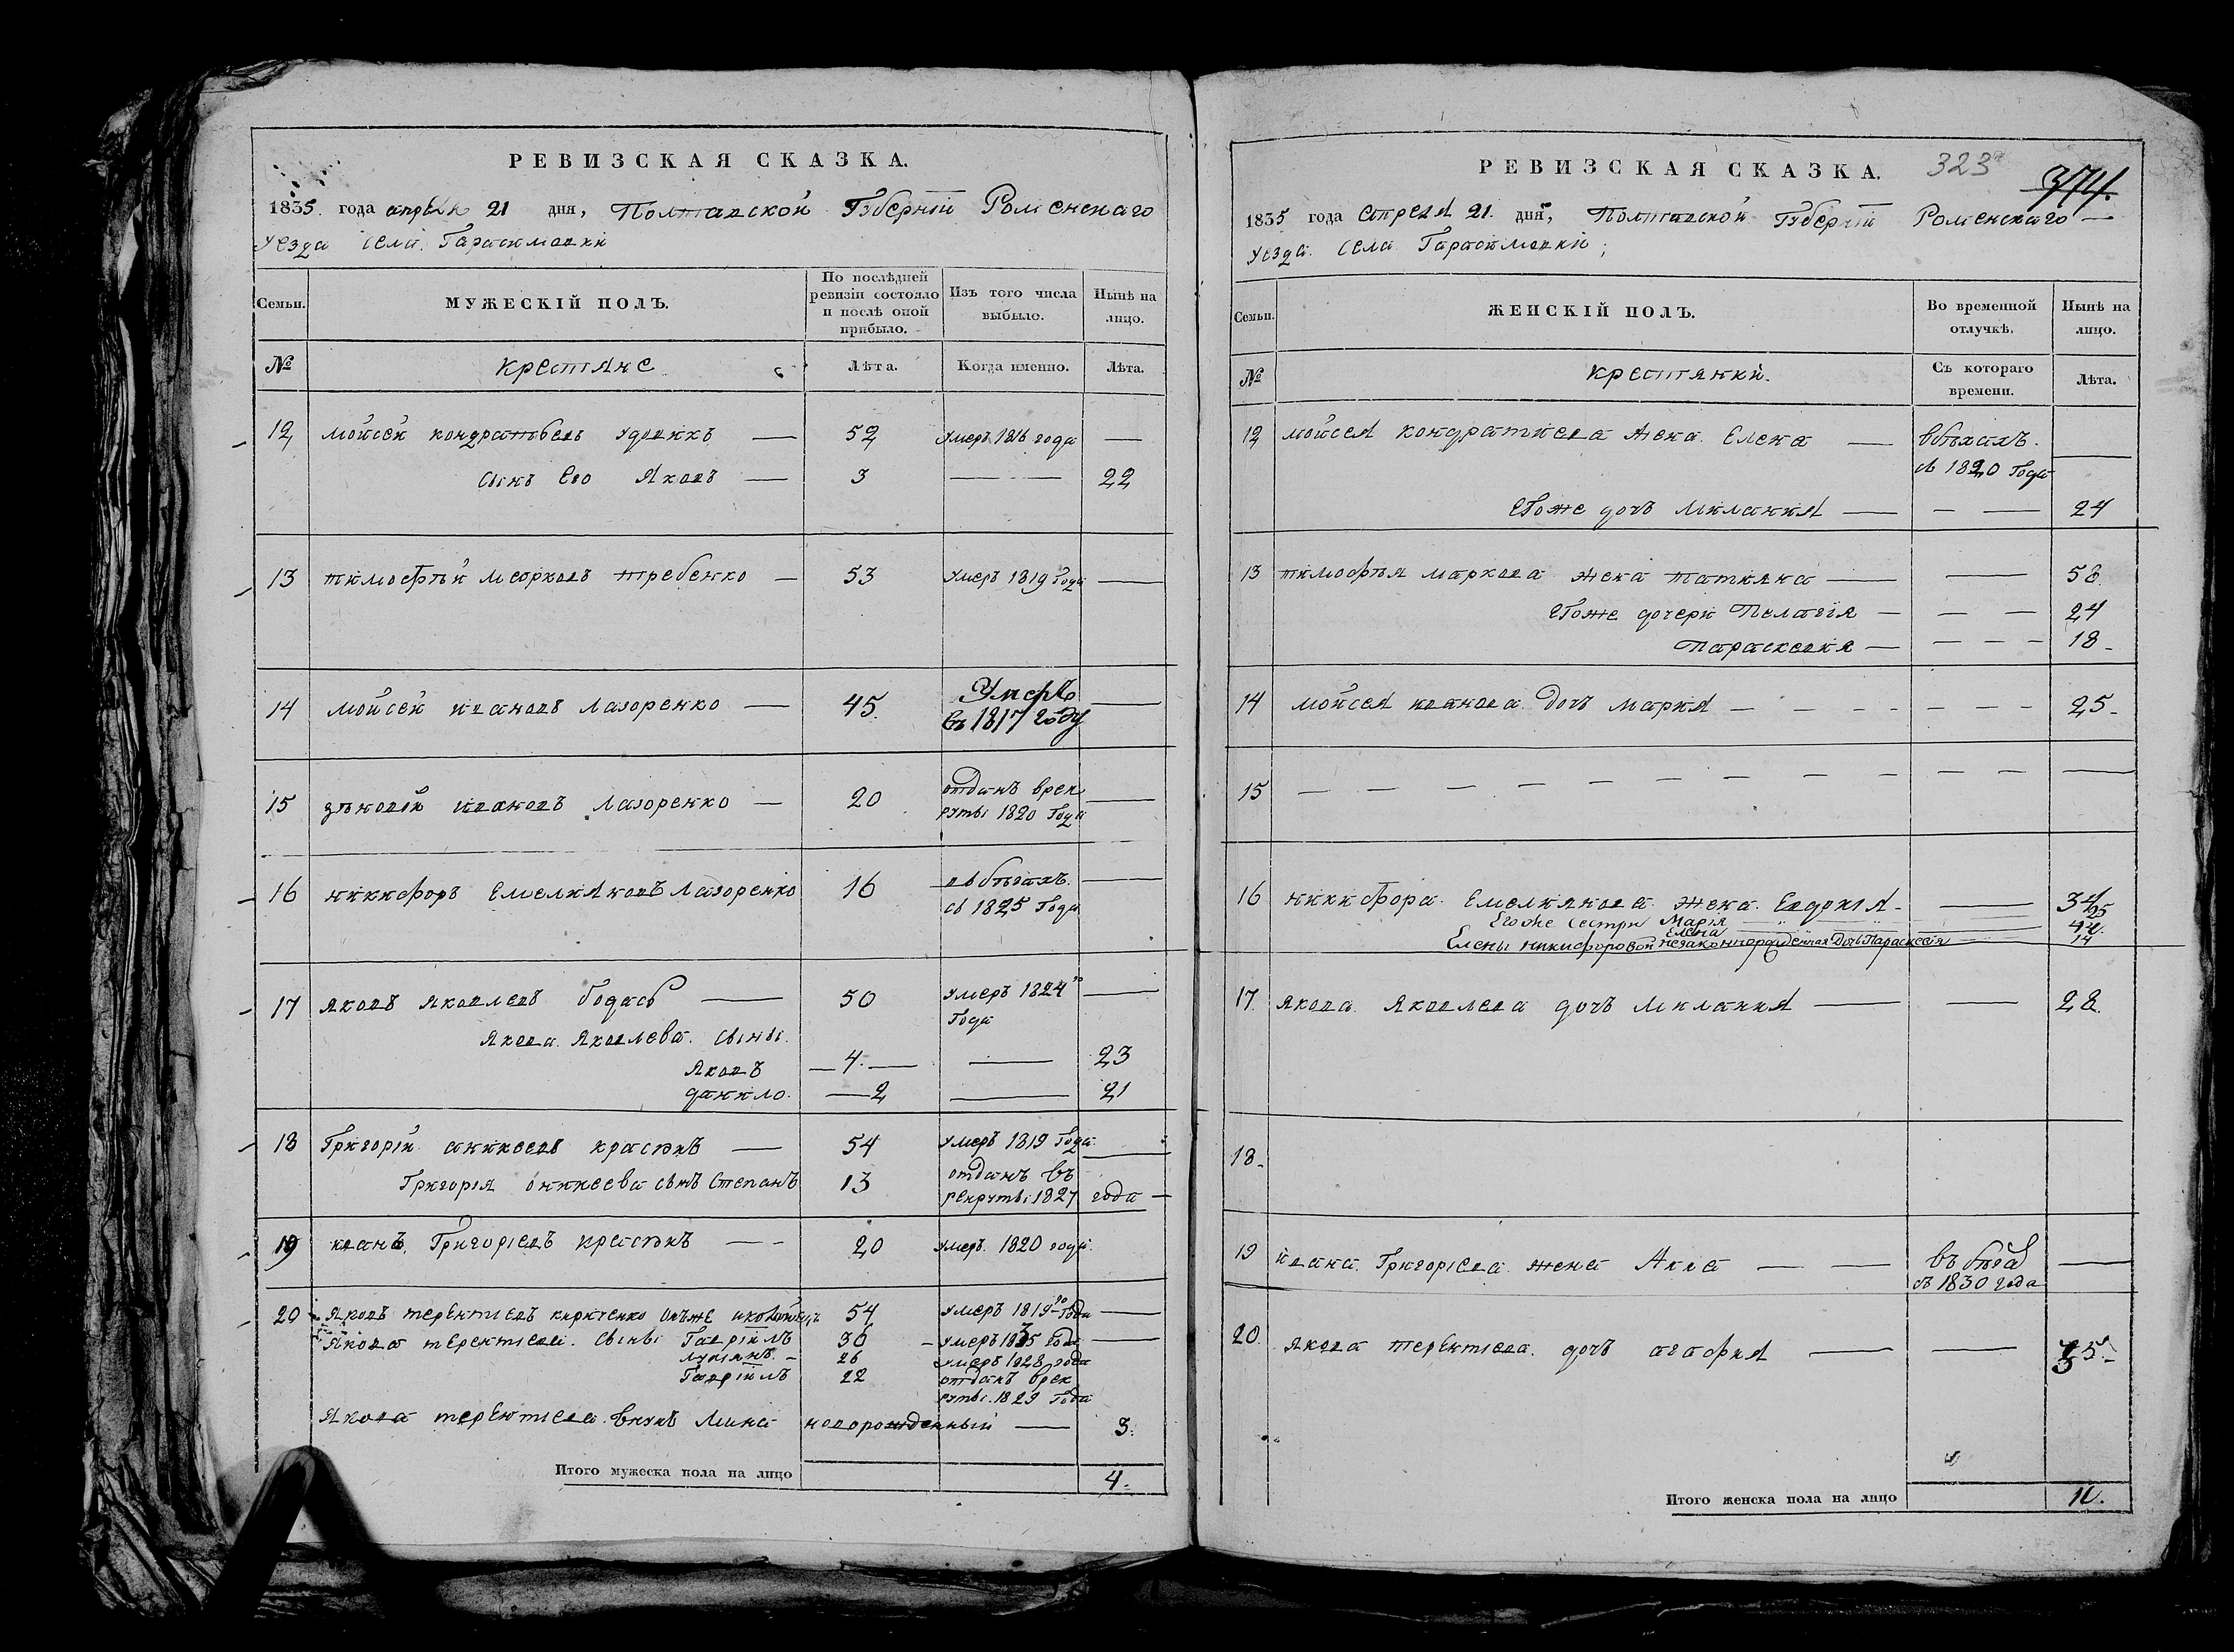 РЕВИЗСКАЯ СКАЗКА.
1835 года апреля 21 дня, Полтавской Губерніи Роменскаго
уезда села Гарасимовки
Семьи.
МУЖЕСКІЙ ПОЛЪ.
По послѣдней ревизіи состояло и послѣ оной прибыло.
Изъ того числа выбыло.
Нынѣ на лицо.
№
крестяне
Лѣта.
Когда именно.
Лѣта.
12 мойсей кондратьевъ удовикъ — 52 умеръ 1816 года —
сынъ его Яковъ — 3 — 22
13 тимофѣй марковъ требенко — 53 умеръ 1819 года —
14 мойсей ивановъ лазоренко — 45. Умеръ
въ 1817 году —
15 зѣновій ивановъ лазоренко — 20 отданъ врек
руты 1820 года —
16 никифоръ Емелияновъ Лазоренко 16 въ бѣгахъ.
съ 1825 года —
17 яковъ яковлевъ — 50 умеръ 1824го
года —
якова яковлева. сыны.
яковъ — 4. — — 23
данило. — 2 — 21
18 Григорій аникеевъ — 54 умеръ 1819 года. —
Григорія оникеева сынъ Степанъ 13 отданъ въ
рекруты 1827 года —
19 иванъ. Григоріевъ — 20 умеръ. 1820 года.
20 Яковъ терентіевъ онъже 54 умеръ 1819го года —
Якова терентіева. сыны Гаврійлъ 36 — умеръ 1835 года —
лукіянъ. — 26 умеръ 1828 года
Гаврійлъ 22 отданъ врек
руты. 1829 года
Якова терентіева. внукъ Мина новорожденный — 3.
Итого мужеска пола на лицо 4.
РЕВИЗСКАЯ СКАЗКА. 323
374.
1835 года апреля 21. дня, Полтавской Губерніи Роменскаго —
уезда. села Гарасимовки;
Семьи.
ЖЕНСКІЙ ПОЛЪ.
Во временной отлучкѣ.
Нынѣ на лицо.
№
крестянки.
Съ котораго времени.
Лѣта.
12 мойсея кондратиева жена. Елена — вбѣхахъ.
съ 1820 года —
Егоже дочъ милания — — — 24
13 тимофѣя маркова жена татияна — — 58.
Егоже дочери Пелагія — — — 24
параскевия — — — — 18 –
14 мойсея иванова. дочъ мария — — — — — — — 25 –
15 — — — — — — — — — — — —
16 никифора. Емелиянова. жена. Евдокия – — 34
Егоже сестри Марія — 25
Елена —
Елены Никифоровой незаконнорожденная дочъ Параскевія — 14
17. якова. яковлева дочъ милания — — 28.
18 –
19 ивана. Григоріева. жена Анна — — въ бѣга
съ 1830 года —
20. якова терентіева. дочъ агафия — — 35. –
Итого женска пола на лицо